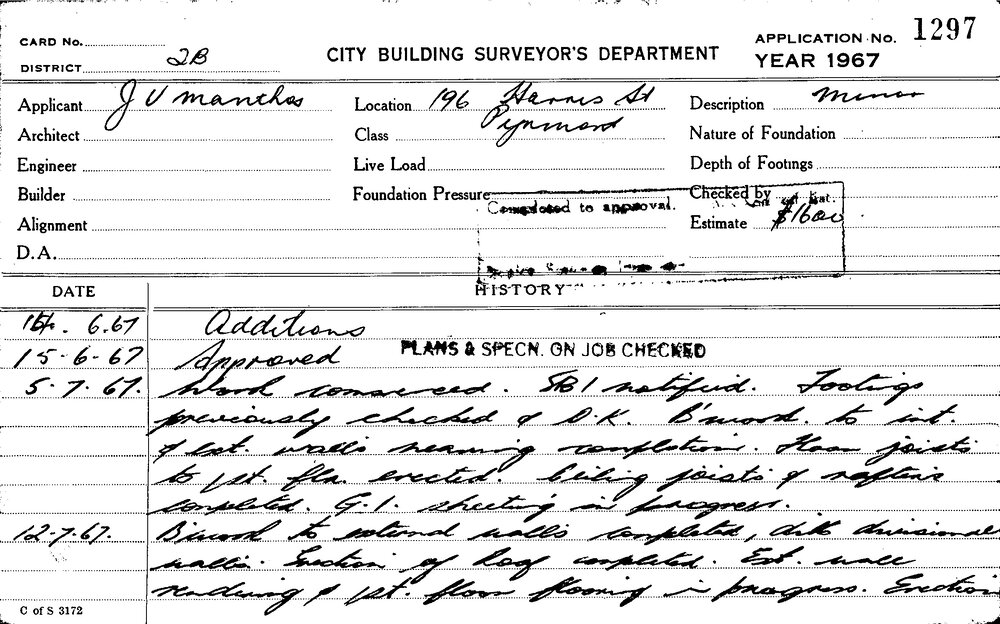 CARD No.
DISTRICT 2B
CITY BUILDING SURVEYOR'S DEPARTMENT
APPLICATION No. 1297
YEAR 1967
Applicant J V Manthos
Location 196 Harris St
Pyrmont
Description Minor
Architect
Class
Nature of Foundation
Engineer
Live Load
Depth of Footings
Builder
Foundation Pressure
Checked by
Completed to approval.
Alignment
Estimate $1600
D.A.
DATE
HISTORY
6.67 Additions
15-6-67 Approved PLANS & SPECN. ON JOB CHECKED
5.7.67. Work commenced. SB1 notified. Footings
previously checked & O.K. B'work to int.
& ext. walls nearing completion. Floor joists
to 1st. flr. erected. Ceiling joists & rafters
completed. G.I. sheeting in progress.
12-7.67. B'work to external walls completed, ditto divisional
walls. Erection of roof completed. Ext. wall
rendering & 1st. floor flooring in progress. Erection
C of S 3172